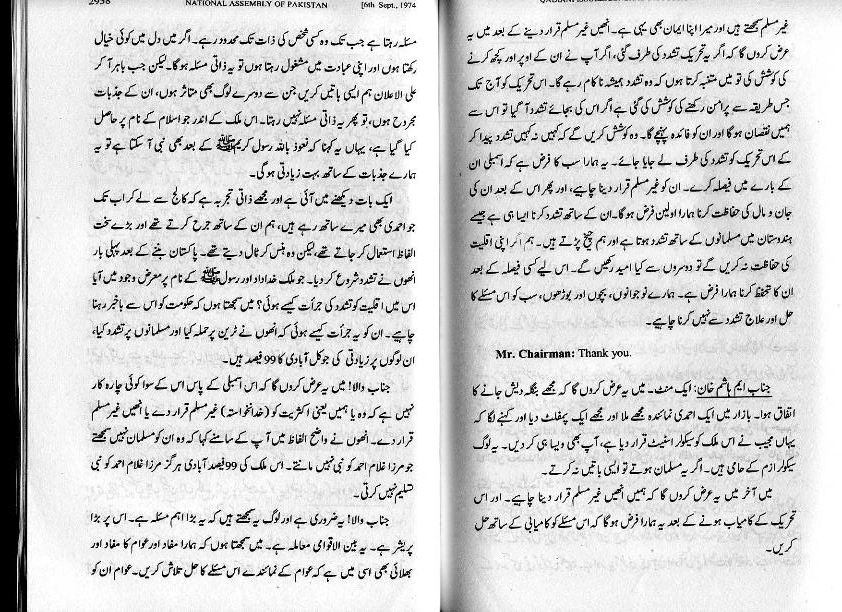 2938
NATIONAL ASSEMBLY OF PAKISTAN
[6th Sept., 1974
مسئلہ رہتا ہے جب تک وہ کسی شخص کی ذات تک محدود رہے۔ اگر میں دل میں کوئی خیال
رکھتا ہوں اور اپنی عبادت میں مشغول رہتا ہوں تو یہ ذاتی مسئلہ ہوگا۔ لیکن جب باہر آ کر
علی الاعلان ہم ایسی باتیں کریں جن سے دوسرے لوگ بھی متاثر ہوں، ان کے جذبات
مجروح ہوں، تو پھر یہ ذاتی مسئلہ نہیں رہتا۔ اس ملک کے اندر جو اسلام کے نام پر حاصل
کیا گیا ہے، یہاں یہ کہنا کہ نعوذ باللہ رسول کریم ﷺ کے بعد بھی نبی آ سکتا ہے تو یہ
ہمارے جذبات کے ساتھ بہت زیادتی ہوگی۔
ایک بات دیکھنے میں آئی ہے اور مجھے ذاتی تجربہ ہے کہ کالج سے لے کر اب تک
جو احمدی بھی میرے ساتھ رہے ہیں، ہم ان کے ساتھ جرح کرتے تھے اور بڑے سخت
الفاظ استعمال کر جاتے تھے، لیکن وہ ہنس کر ٹال دیتے تھے۔ پاکستان بننے کے بعد پہلی بار
انھوں نے تشدد شروع کر دیا۔ جو ملک خداداد اور رسول ﷺ کے نام پر معرض وجود میں آیا
اس میں اقلیت کو تشدد کی جرأت کیسے ہوئی؟ میں سمجھتا ہوں کہ حکومت کو اس سے باخبر رہنا
چاہیے۔ ان کو یہ جرأت کیسے ہوئی کہ انھوں نے ٹرین پر حملہ کیا اور مسلمانوں پر تشدد کیا،
ان لوگوں پر زیادتی کی جو کل آبادی کا 99 فیصد ہیں۔
جناب والا! میں یہ عرض کروں گا کہ اس اسمبلی کے پاس اس کے سوا کوئی چارہ کار
نہیں ہے کہ وہ یا ہمیں یعنی اکثریت کو (خدانخواستہ) غیر مسلم قرار دے یا انھیں غیر مسلم
قرار دے۔ انھوں نے واضح الفاظ میں آپ کے سامنے کہا کہ وہ ان کو مسلمان نہیں سمجھتے
جو مرزا غلام احمد کو نبی نہیں مانتے۔ اس ملک کی 99 فیصد آبادی ہرگز مرزا غلام احمد کو نبی
تسلیم نہیں کرتی۔
جناب والا! یہ ضروری ہے اور لوگ یہ سمجھتے ہیں کہ یہ بڑا اہم مسئلہ ہے۔ اس پر بڑا
پریشر ہے۔ یہ بین الاقوامی معاملہ ہے۔ میں سمجھتا ہوں کہ ہمارا مفاد اور عوام کا مفاد اور
بھلائی بھی اسی میں ہے کہ عوام کے نمائندے اس مسئلے کا حل تلاش کریں۔ عوام ان کو
غیر مسلم سمجھتے ہیں اور میرا اپنا ایمان بھی یہی ہے۔ انھیں غیر مسلم قرار دینے کے بعد میں یہ
عرض کروں گا کہ اگر یہ تحریک تشدد کی طرف گئی، اگر آپ نے ان کے اوپر اور کچھ کرنے
کی کوشش کی تو میں متنبہ کرتا ہوں کہ وہ تشدد ہمیشہ ناکام رہے گا۔ اس تحریک کو آج تک
جس طریقہ سے پرامن رکھنے کی کوشش کی گئی ہے اگر اس کی بجائے تشدد آ گیا تو اس سے
ہمیں نقصان ہوگا اور ان کو فائدہ پہنچے گا۔ وہ کوشش کریں گے کہ کہیں نہ کہیں تشدد پیدا کر
کے اس تحریک کو تشدد کی طرف لے جایا جائے۔ یہ ہمارا سب کا فرض ہے کہ اسمبلی ان
کے بارے میں فیصلہ کرے۔ ان کو غیر مسلم قرار دینا چاہیے، اور پھر اس کے بعد ان کی
جان و مال کی حفاظت کرنا ہمارا اولین فرض ہوگا۔ ان کے ساتھ تشدد کرنا ایسا ہی ہے جیسے
ہندوستان میں مسلمانوں کے ساتھ تشدد ہوتا ہے اور ہم چیخ پڑتے ہیں۔ ہم اگر اپنی اقلیت
کی حفاظت نہ کریں گے تو دوسروں سے کیا امید رکھیں گے۔ اس لیے کسی فیصلہ کے بعد
ان کا تحفظ کرنا ہمارا فرض ہے۔ ہمارے نوجوانوں، بچوں اور بوڑھوں، سب کو اس مسئلے کا
حل اور علاج تشدد سے نہیں کرنا چاہیے۔
Mr. Chairman: Thank you.
جناب ایم ہاشم خان: ایک منٹ۔ میں یہ عرض کروں گا کہ مجھے بنگلہ دیش جانے کا
اتفاق ہوا۔ بازار میں ایک احمدی نمائندہ مجھے ملا اور مجھے ایک پمفلٹ دیا اور کہنے لگا کہ
یہاں مجیب نے اس ملک کو سیکولر اسٹیٹ قرار دیا ہے، آپ بھی ویسا ہی کر دیں۔ یہ لوگ
سیکولر ازم کے حامی ہیں۔ اگر یہ مسلمان ہوتے تو ایسی باتیں نہ کرتے۔
میں آخر میں یہ عرض کروں گا کہ ہمیں انھیں غیر مسلم قرار دینا چاہیے۔ اور اس
تحریک کے کامیاب ہونے کے بعد یہ ہمارا فرض ہوگا کہ اس مسئلے کو کامیابی کے ساتھ حل
کریں۔